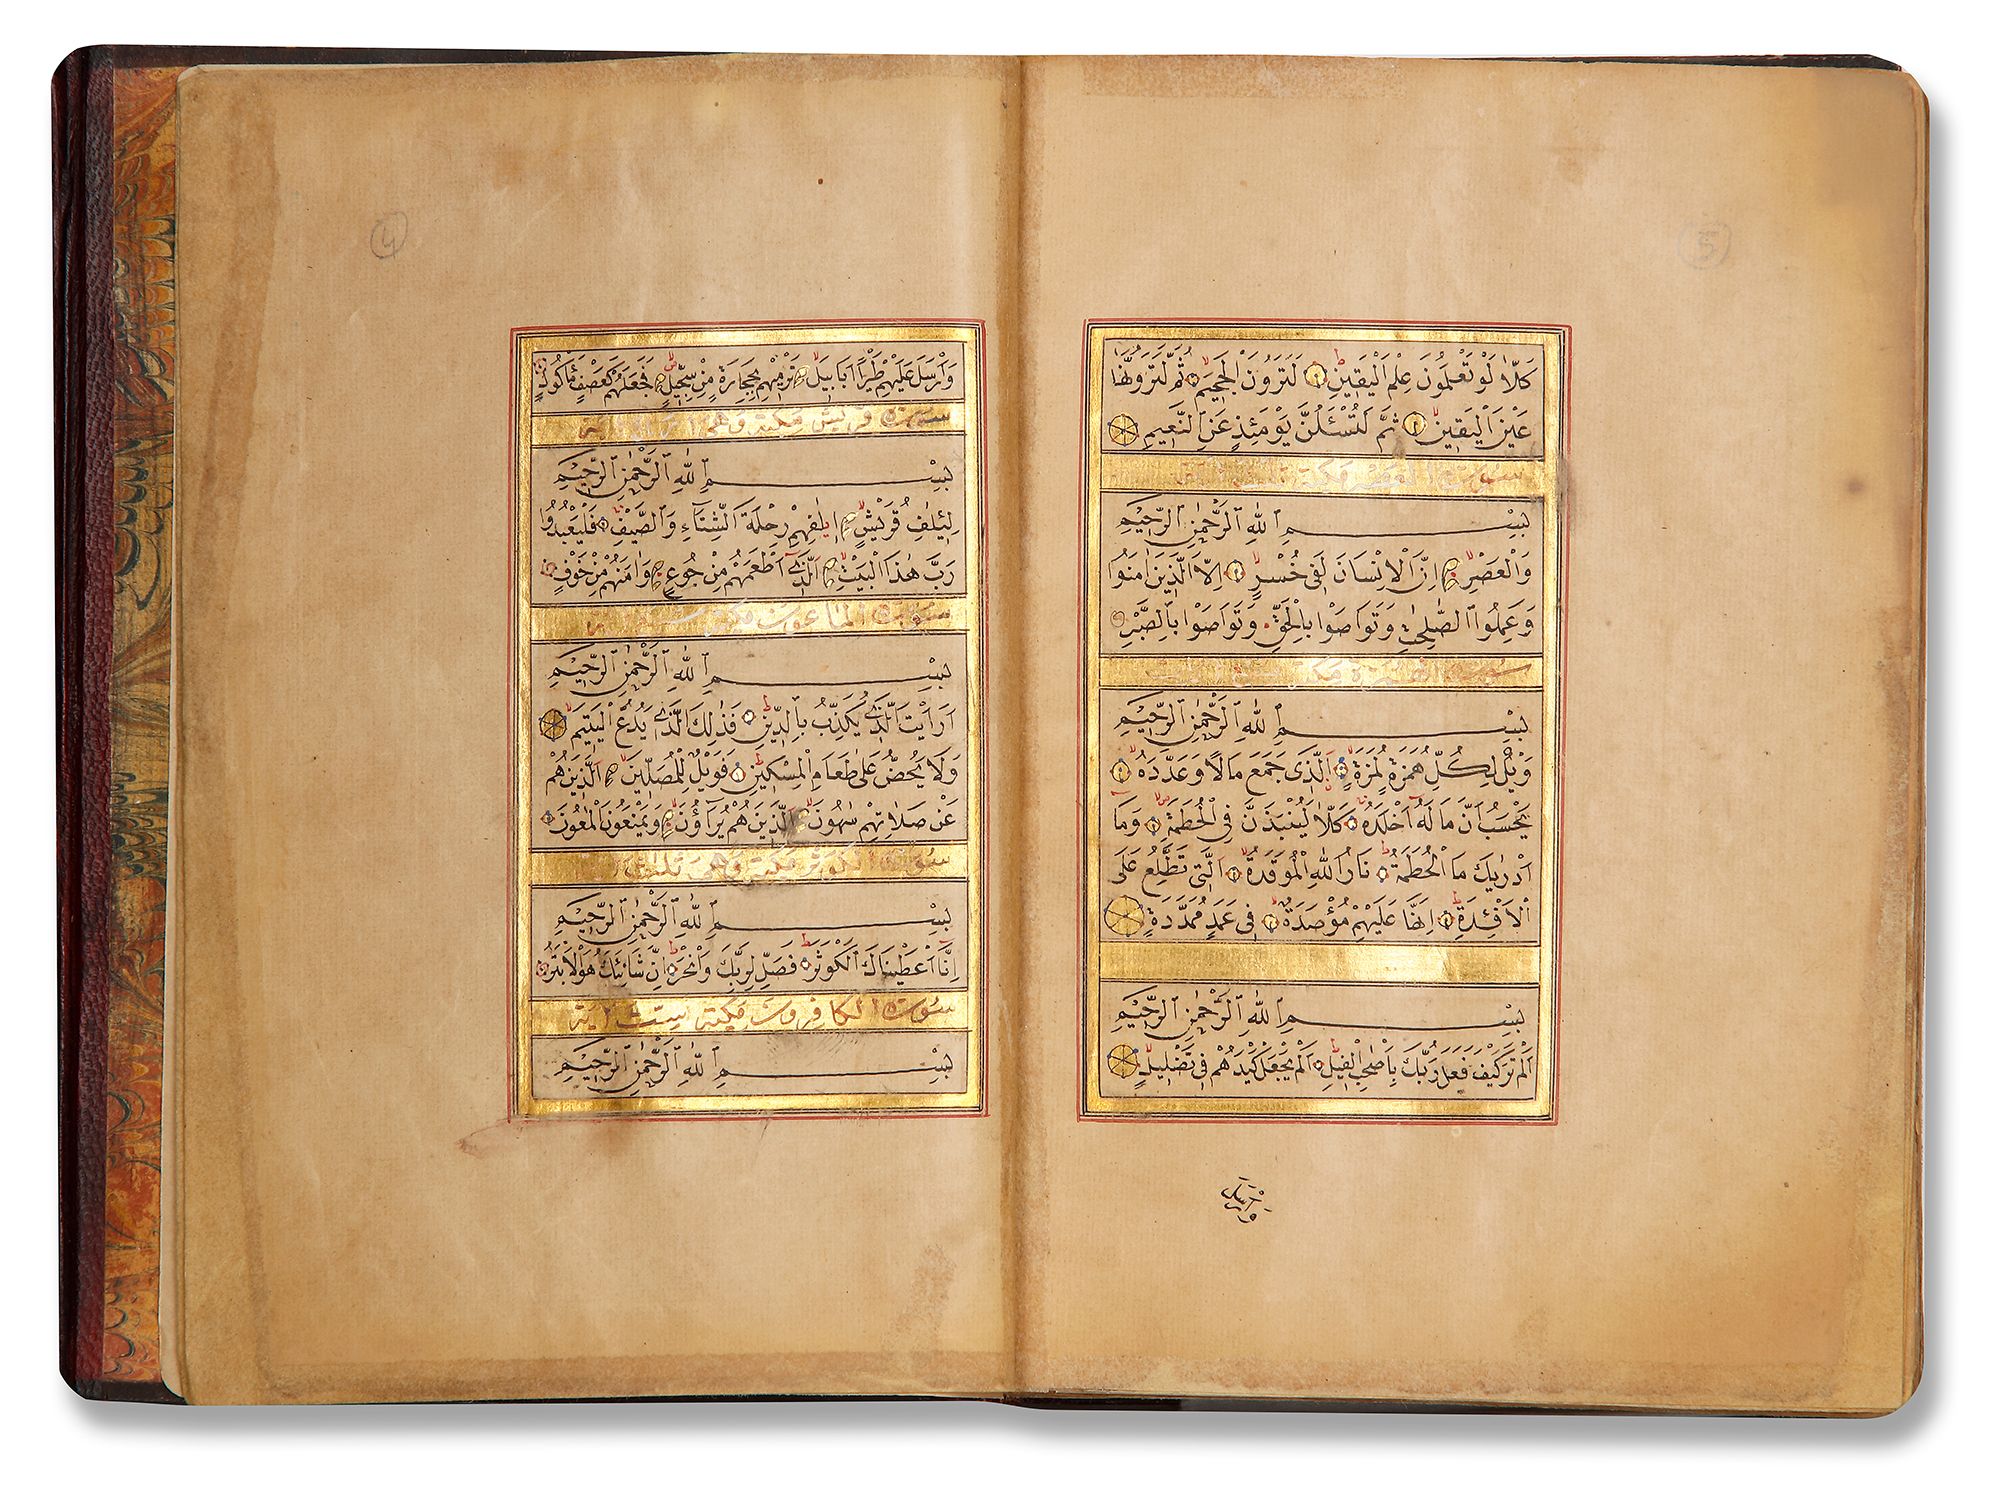 5
كَلَّا لَوْ تَعْلَمُونَ عِلْمَ الْيَقِينِ لَتَرَوُنَّ الْجَحِيمَ ثُمَّ لَتَرَوُنَّهَا
عَيْنَ الْيَقِينِ ثُمَّ لَتُسْئَلُنَّ يَوْمَئِذٍ عَنِ النَّعِيمِ
سورة العصر مكية
بِسْمِ اللّٰهِ الرَّحْمٰنِ الرَّحِيمِ
وَالْعَصْرِ اِنَّ الْاِنْسَانَ لَفِى خُسْرٍ اِلَّا الَّذِينَ اٰمَنُوا
وَعَمِلُوا الصَّالِحَاتِ وَتَوَاصَوْا بِالْحَقِّ وَتَوَاصَوْا بِالصَّبْرِ
سورة الهمزة مكية
بِسْمِ اللّٰهِ الرَّحْمٰنِ الرَّحِيمِ
وَيْلٌ لِكُلِّ هُمَزَةٍ لُمَزَةٍ الَّذِى جَمَعَ مَالًا وَعَدَّدَهُ
يَحْسَبُ اَنَّ مَالَهُ اَخْلَدَهُ كَلَّا لَيُنْبَذَنَّ فِى الْحُطَمَةِ وَمَا
اَدْرٰيكَ مَا الْحُطَمَةُ نَارُ اللّٰهِ الْمُوقَدَةُ الَّتِى تَطَّلِعُ عَلَى
الْاَفْئِدَةِ اِنَّهَا عَلَيْهِمْ مُؤْصَدَةٌ فِى عَمَدٍ مُمَدَّدَةٍ
بِسْمِ اللّٰهِ الرَّحْمٰنِ الرَّحِيمِ
اَلَمْ تَرَ كَيْفَ فَعَلَ رَبُّكَ بِاَصْحَابِ الْفِيلِ اَلَمْ يَجْعَلْ كَيْدَهُمْ فِى تَضْلِيلٍ
وَاَرْسَلَ
4
وَاَرْسَلَ عَلَيْهِمْ طَيْرًا اَبَابِيلَ تَرْمِيهِمْ بِحِجَارَةٍ مِنْ سِجِّيلٍ فَجَعَلَهُمْ كَعَصْفٍ مَأْكُولٍ
سورة قريش مكية وهى
بِسْمِ اللّٰهِ الرَّحْمٰنِ الرَّحِيمِ
لِاِيلَافِ قُرَيْشٍ اِيلَافِهِمْ رِحْلَةَ الشِّتَاءِ وَالصَّيْفِ فَلْيَعْبُدُوا
رَبَّ هٰذَا الْبَيْتِ الَّذِى اَطْعَمَهُمْ مِنْ جُوعٍ وَاٰمَنَهُمْ مِنْ خَوْفٍ
سورة الماعون مكية
بِسْمِ اللّٰهِ الرَّحْمٰنِ الرَّحِيمِ
اَرَاَيْتَ الَّذِى يُكَذِّبُ بِالدِّينِ فَذٰلِكَ الَّذِى يَدُعُّ الْيَتِيمَ
وَلَا يَحُضُّ عَلٰى طَعَامِ الْمِسْكِينِ فَوَيْلٌ لِلْمُصَلِّينَ الَّذِينَ هُمْ
عَنْ صَلَاتِهِمْ سَاهُونَ الَّذِينَ هُمْ يُرَاؤُنَ وَيَمْنَعُونَ الْمَاعُونَ
سورة الكوثر مكية وهى ثلث
بِسْمِ اللّٰهِ الرَّحْمٰنِ الرَّحِيمِ
اِنَّا اَعْطَيْنَاكَ الْكَوْثَرَ فَصَلِّ لِرَبِّكَ وَانْحَرْ اِنَّ شَانِئَكَ هُوَ الْاَبْتَرُ
سورة الكافرون مكية ست اية
بِسْمِ اللّٰهِ الرَّحْمٰنِ الرَّحِيمِ